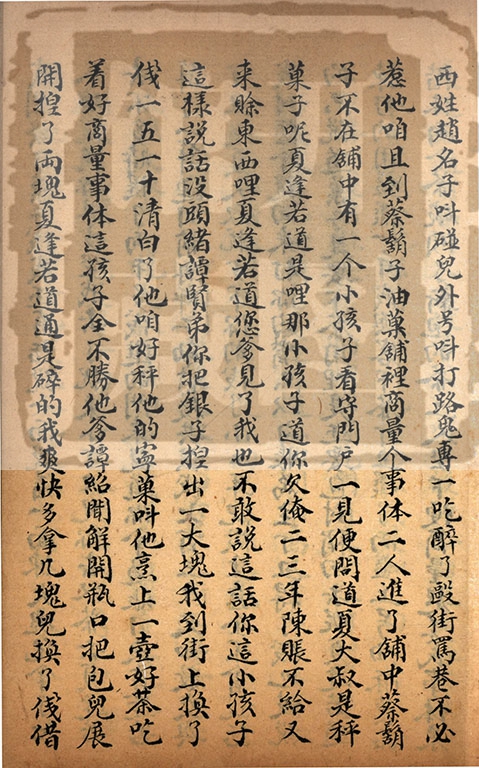 西姓趙名子呌碰兒外号呌打路鬼專一吃醉了毆街罵巷不必
惹他咱且到蔡鬍子油菓舖裡商量个事体二人進了舖中蔡鬍
子不在舖中有一个小孩子看守門户一見便問道夏大叔是秤
菓子呢夏逢若道是哩那小孩子道你欠俺二三年陳賬不給又
来賒東西哩夏逢若道您爹見了我也不敢說這話你這小孩子
這樣說話没頭緒譚賢弟你把銀子揑出一大塊我到街上換了
伐一五一十清白了他咱好秤他的寔菓呌他烹上一壺好茶吃
着好商量事体這孩子全不勝他爹譚紹聞解開瓶口把包兒展
開揑了両塊夏逢若道通是碎的我爽快多拿几塊兒換了伐借